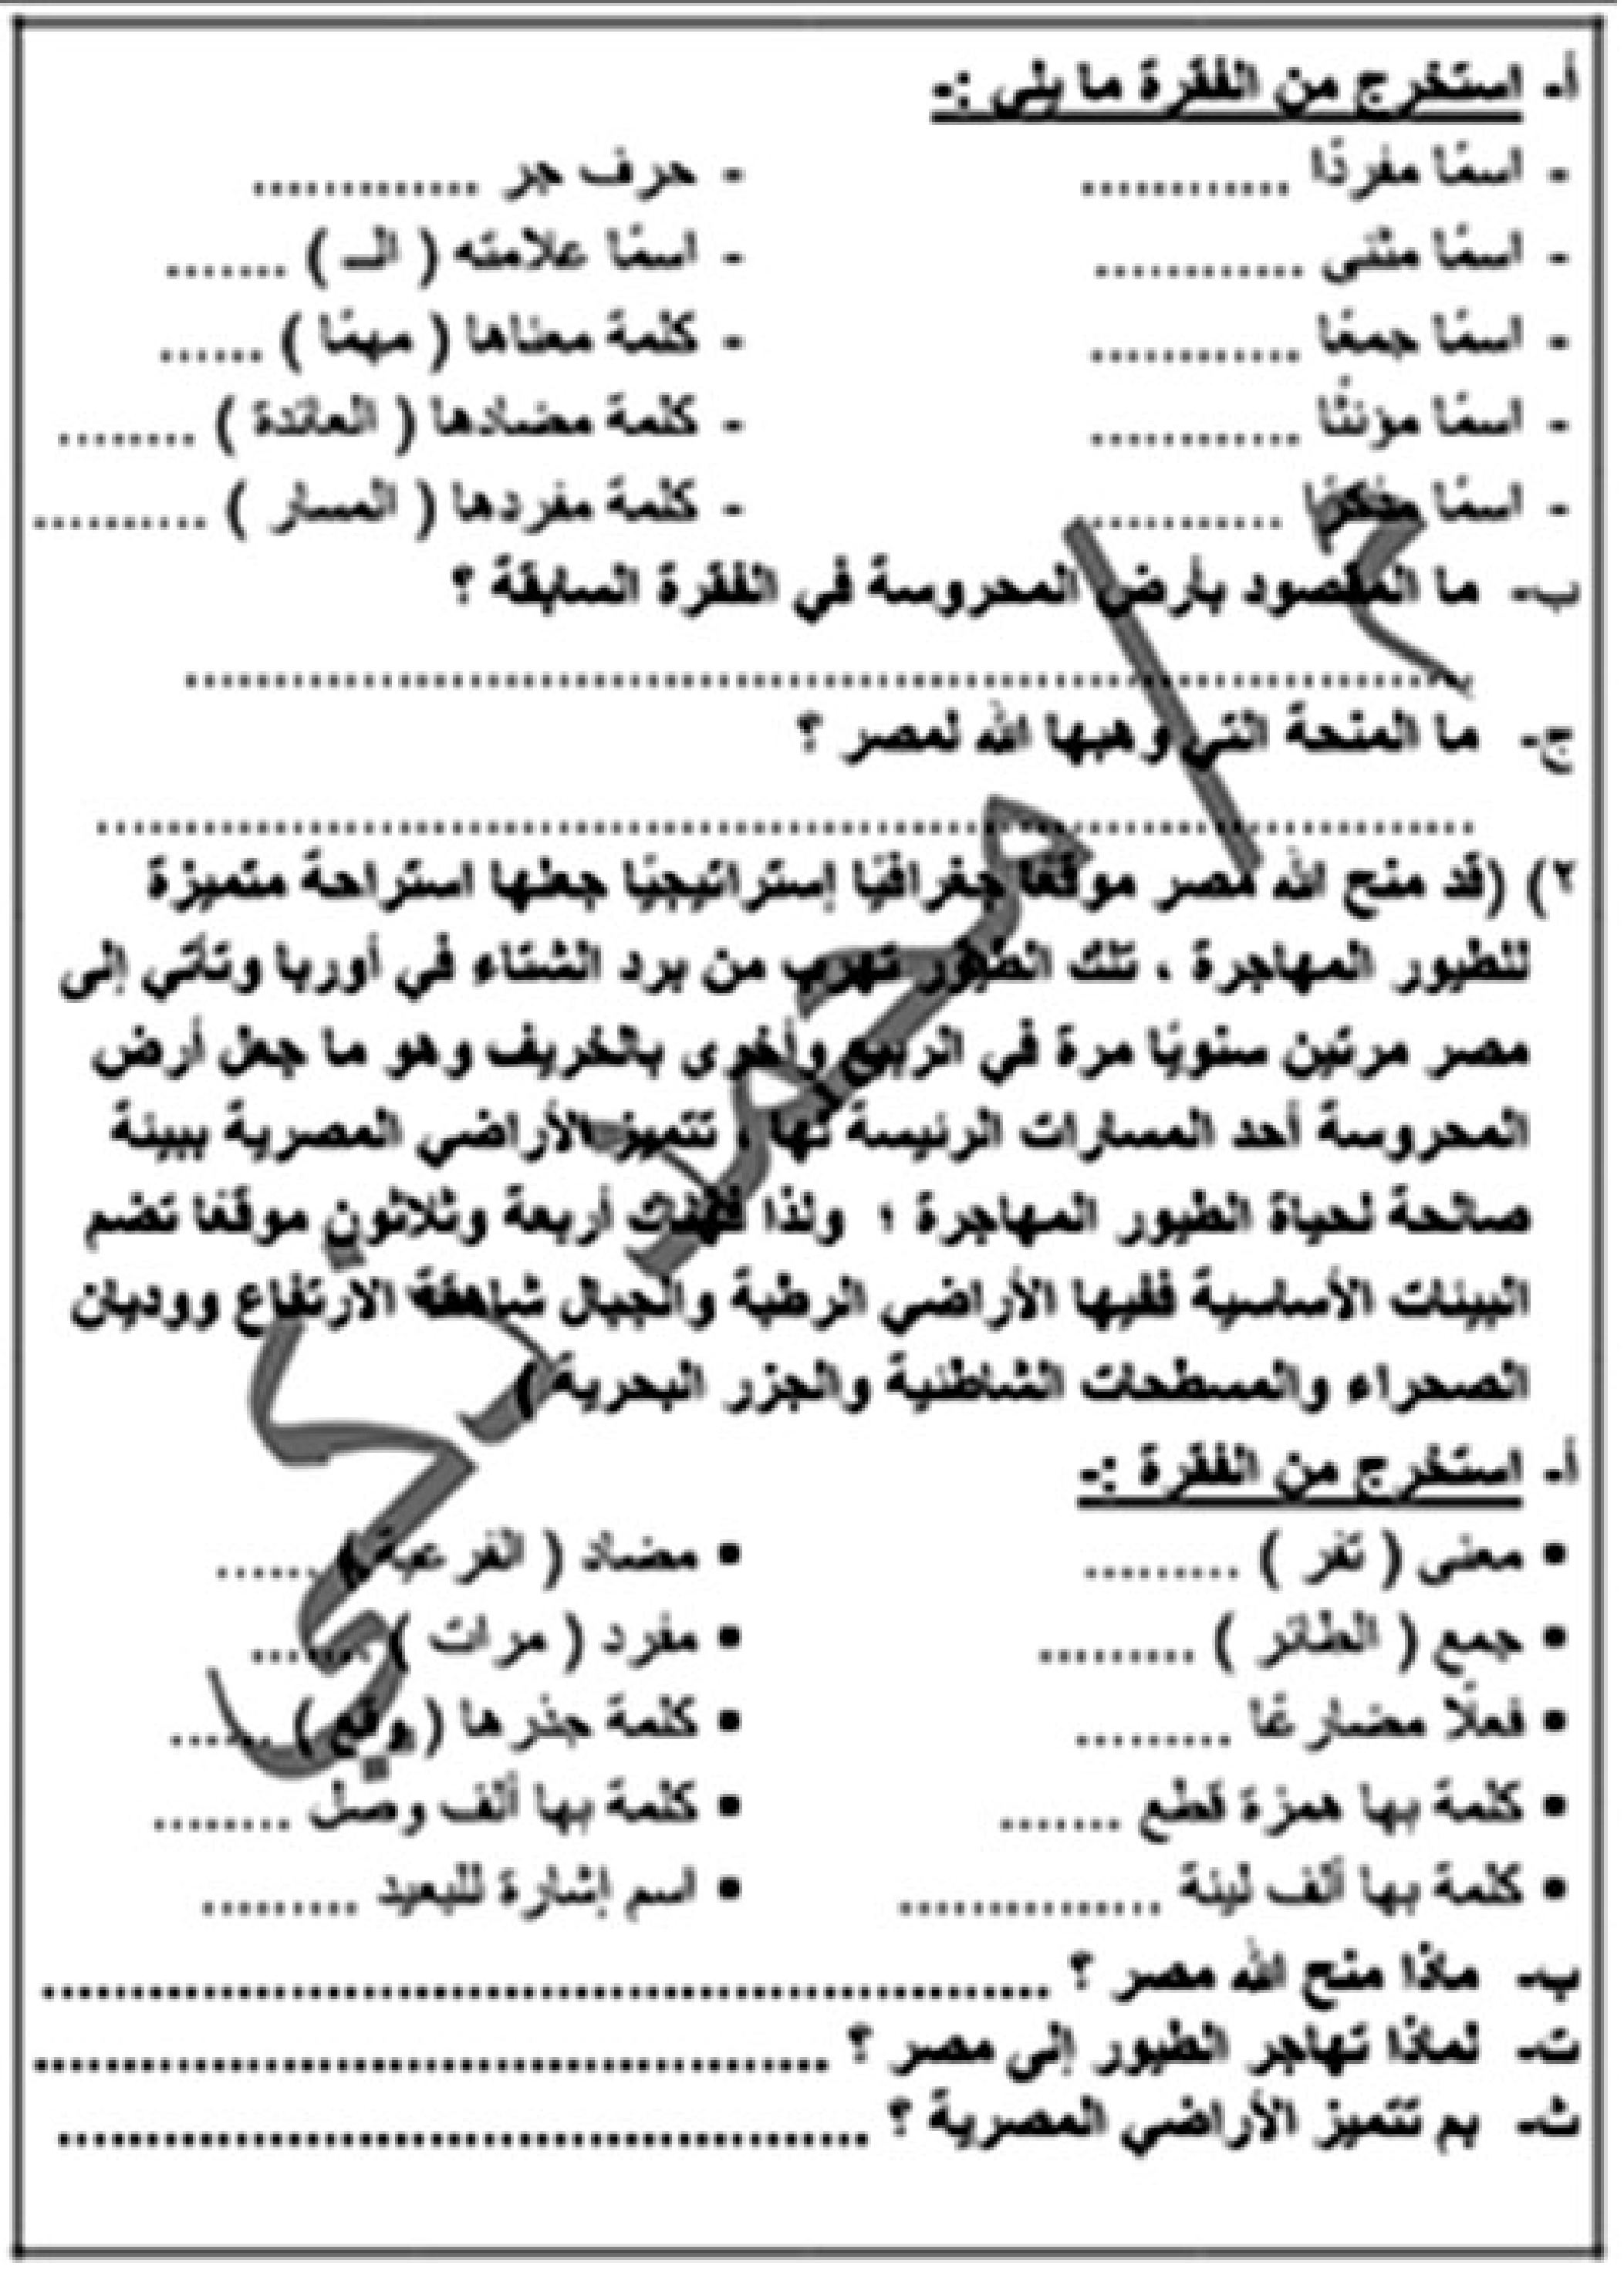 أ- استخرج من الفقرة ما يلي :-
- اسمًا مفردًا ............ - حرف جر .............
- اسمًا مثنى ............ - اسمًا علامته ( الـ ) .......
- اسمًا جمعًا ............ - كلمة معناها ( مهمًا ) ......
- اسمًا مؤنثًا ............ - كلمة مضادها ( العائدة ) ........
- اسمًا مذكرًا ............ - كلمة مفردها ( المسار ) ..........
ب- ما المقصود بأرض المحروسة في الفقرة السابقة ؟
................................................................
ج- ما المنحة التي وهبها الله لمصر ؟
................................................................
٢) (قد منح الله مصر موقعًا جغرافيًا إستراتيجيًا جعلها استراحة متميزة
للطيور المهاجرة ، تلك الطيور تهرب من برد الشتاء في أوربا وتأتي إلى
مصر مرتين سنويًا مرة في الربيع وأخرى بالخريف وهو ما جعل أرض
المحروسة أحد المسارات الرئيسة لها ، تتميز الأراضي المصرية ببيئة
صالحة لحياة الطيور المهاجرة ؛ ولذا فهناك أربعة وثلاثون موقعًا تضم
البيئات الأساسية ففيها الأراضي الرطبة والجبال شاهقة الارتفاع ووديان
الصحراء والمسطحات الشاطئية والجزر البحرية )
أ- استخرج من الفقرة :-
• معنى ( تفر ) ......... • مضاد ( الفرعية ) ......
• جمع ( الطائر ) ......... • مفرد ( مرات ) .......
• فعلًا مضارعًا ......... • كلمة جذرها ( وقع ) ......
• كلمة بها همزة قطع ....... • كلمة بها ألف وصل ........
• كلمة بها ألف لينة ............... • اسم إشارة للبعيد .........
ب- ماذا منح الله مصر ؟ ........................................................
ت- لماذا تهاجر الطيور إلى مصر ؟ .............................................
ث- بم تتميز الأراضي المصرية ؟ ..............................................